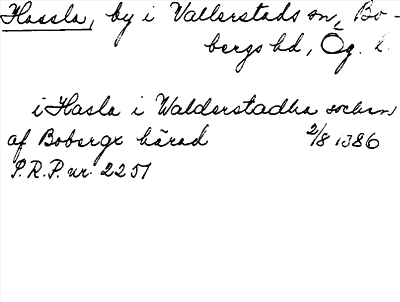 Hassla, by i Vallerstads sn, Bo-
bergs hd, Ög. l.
i Hasla i Walderstadha sochen
af Bobergx härad 2/8 1386
P.R.P. nr 2251